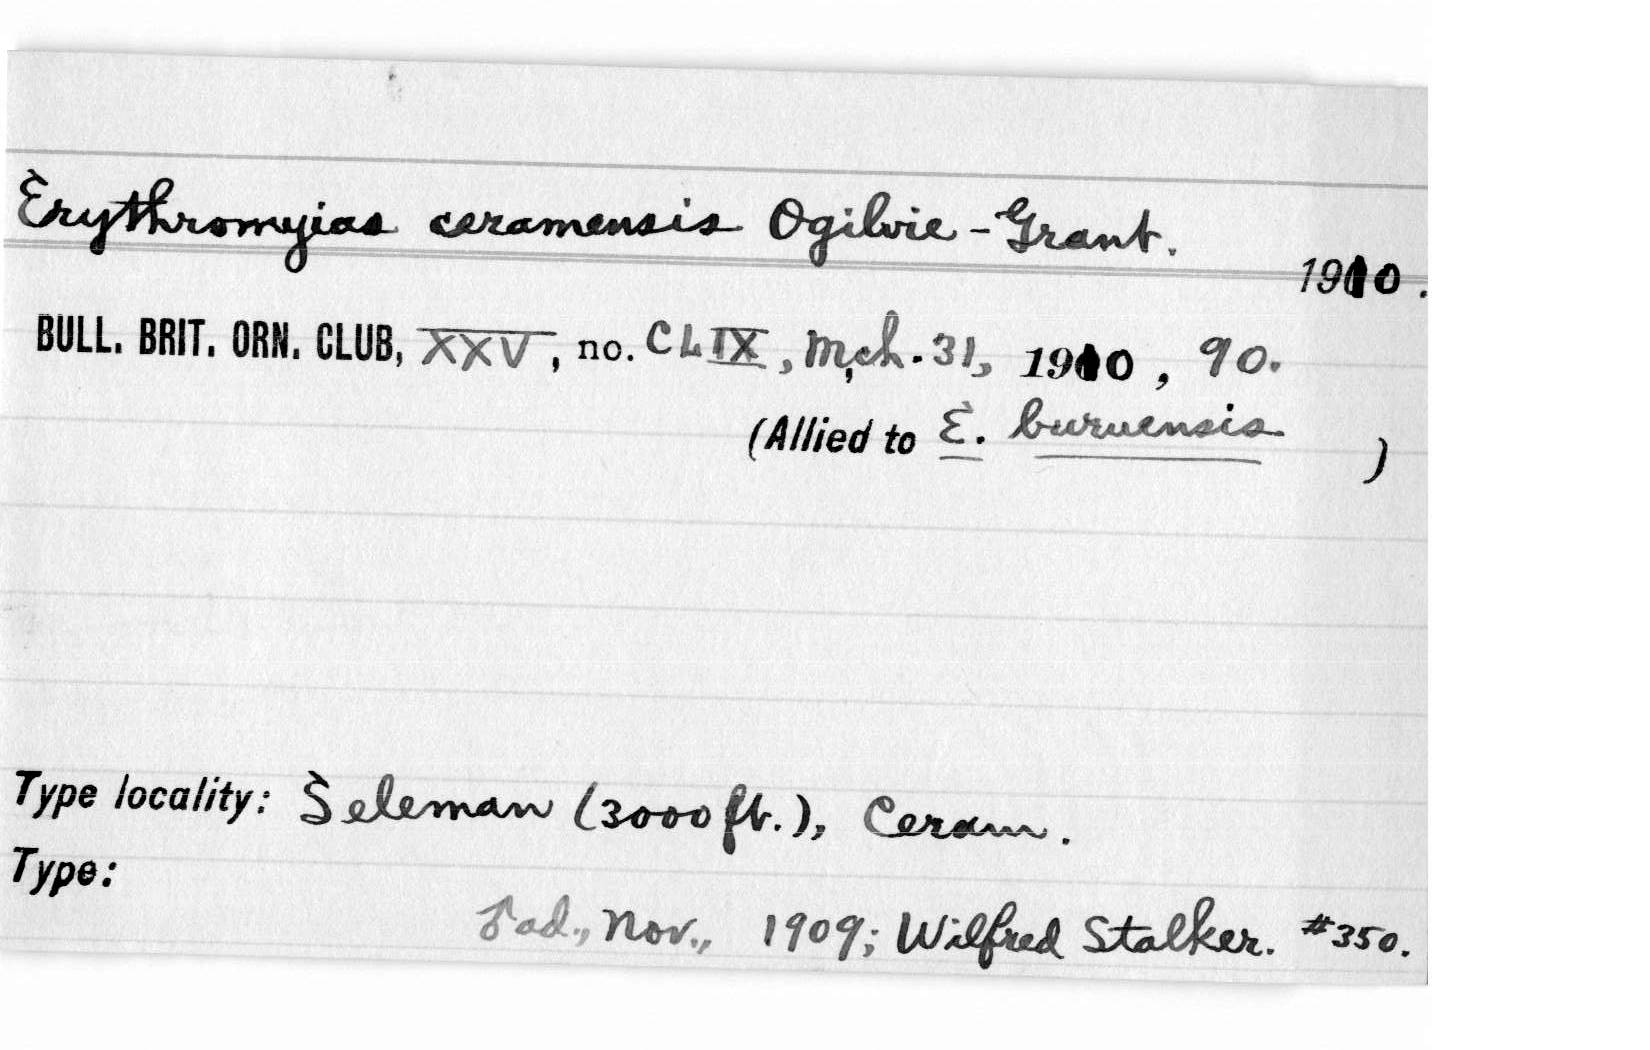 Erythromyias ceramensis Ogilvie-Grant.
1910.
BULL. BRIT. ORN. CLUB, XXV, no. CLIX, Mch. 31, 1910, 90.
(Allied to E. buruensis )
Type locality: Seleman (3000 ft.), Ceram.
Type:
♂ ad., Nov., 1909; Wilfred Stalker. #350.